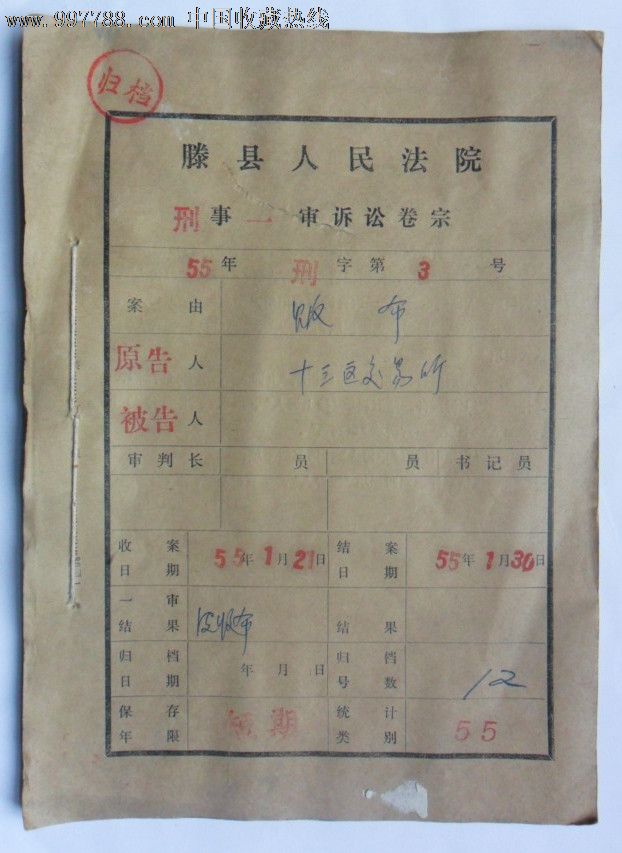 www.997788.com 中国收藏热线
归档
滕县人民法院
刑事一审诉讼卷宗
55年 刑字第3号
案由 贩布
原告人 十三区交易所
被告人
审判长 员 员 书记员
收案日期 55年1月21日 结案日期 55年1月30日
一审结果 没收布 结果
归档日期 年月日 归档号数 12
保存年限 短期 统计类别 55